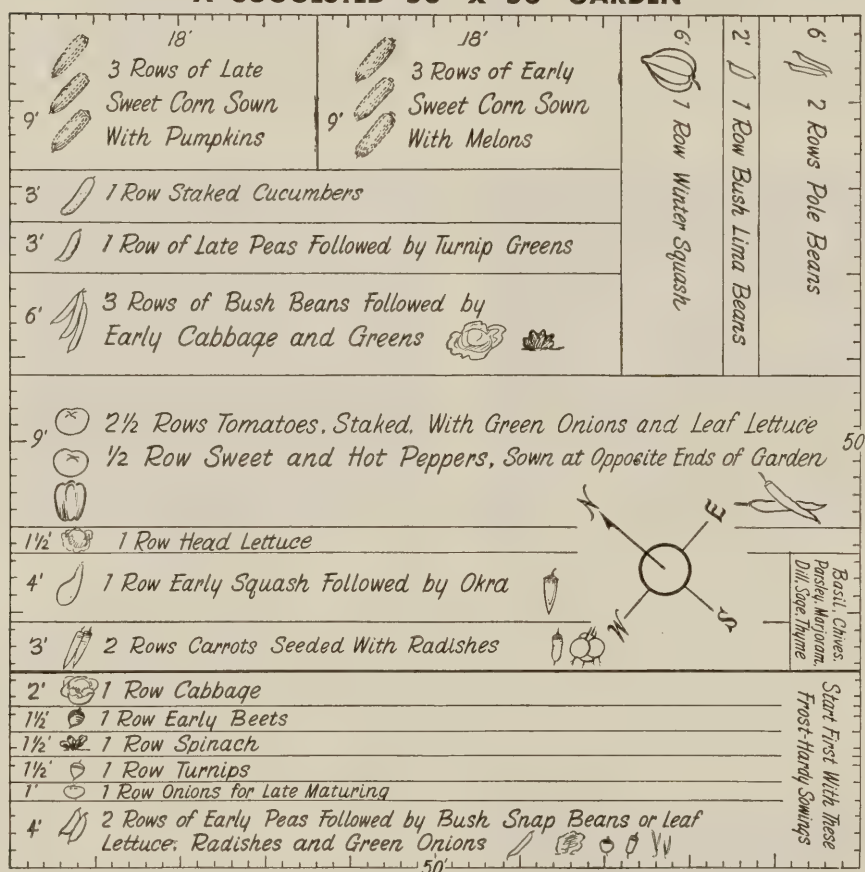 A SUGGESTED 50' X 50' GARDEN
18'
9'
3 Rows of Late
Sweet Corn Sown
With Pumpkins
18'
9'
3 Rows of Early
Sweet Corn Sown
With Melons
6'
1 Row Winter Squash
2'
1 Row Bush Lima Beans
6'
2 Rows Pole Beans
3' 1 Row Staked Cucumbers
3' 1 Row of Late Peas Followed by Turnip Greens
6'
3 Rows of Bush Beans Followed by
Early Cabbage and Greens
9'
2½ Rows Tomatoes, Staked, With Green Onions and Leaf Lettuce
½ Row Sweet and Hot Peppers, Sown at Opposite Ends of Garden
50'
N
E
W
S
1½' 1 Row Head Lettuce
4' 1 Row Early Squash Followed by Okra
3' 2 Rows Carrots Seeded With Radishes
Basil, Chives,
Parsley, Marjoram,
Dill, Sage, Thyme
2' 1 Row Cabbage
1½' 1 Row Early Beets
1½' 1 Row Spinach
1½' 1 Row Turnips
1' 1 Row Onions for Late Maturing
4' 2 Rows of Early Peas Followed by Bush Snap Beans or Leaf
Lettuce, Radishes and Green Onions
Start First With These
Frost-Hardy Sowings
50'